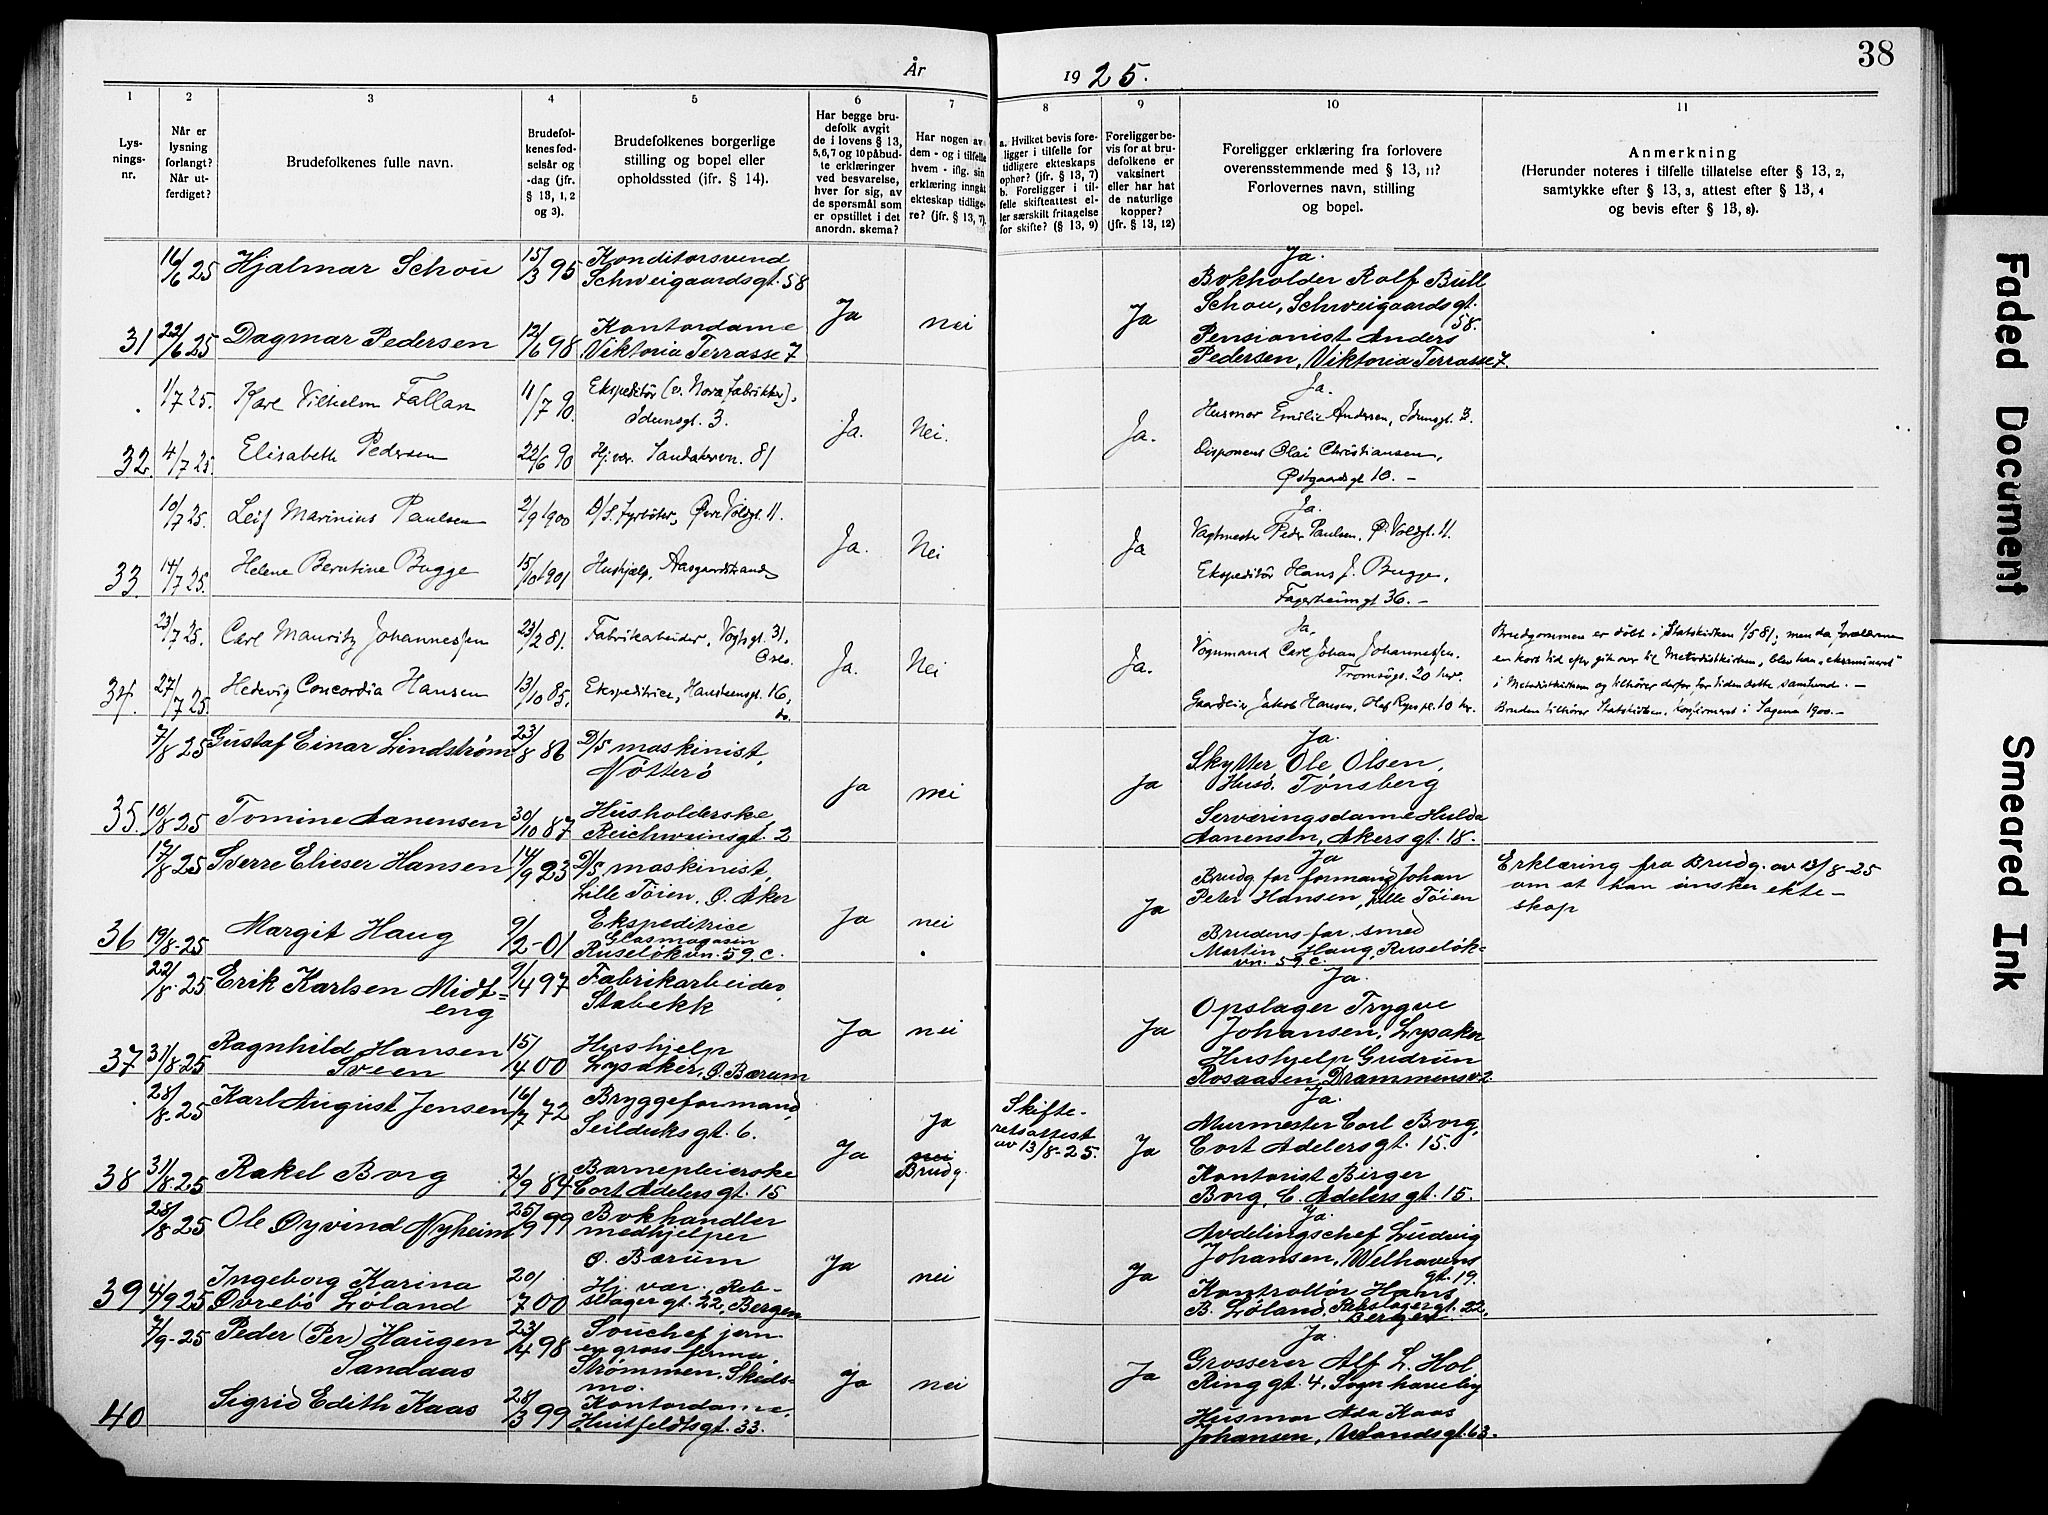 38
År 1925.
1 2 3 4 5 6 7 8 9 10 11
Lys-
nings-
nr.
Når er
lysning
forlangt?
Når ut-
ferdiget?
Brudefolkenes fulle navn.
Brudefol-
kenes fød-
selsår og
-dag (jfr.
§ 13, 1, 2
og 3).
Brudefolkenes borgerlige
stilling og bopel eller
opholdssted (ifr. § 14).
Har begge bru-
defolk avgit
de i lovens § 13,
5, 6, 7 og 10 påbud-
te erklæringer
ved besvarelse,
hver for sig, av
de spørsmål som
er opstillet i det
anordn. skema?
Har nogen av
dem - og i tilfelle
hvem - iflg. sin
erklæring inngåt
ekteskap tidlige-
re? (jfr. § 13, 7).
a. Hvilket bevis fore-
ligger i tilfelle for
tidligere ekteskaps
ophør? (jfr. § 13, 7)
b. Foreligger i til-
felle skifteattest el-
ler særskilt fritagelse
for skifte? (§ 13, 9)
Foreligger be-
vis for at bru-
defolkene er
vaksinert
eller har hat
de naturlige
kopper?
(jfr. § 13, 12)
Foreligger erklæring fra forlovere
overensstemmende med § 13, 11?
Forlovernes navn, stilling
og bopel.
Anmerkning
(Herunder noteres i tilfelle tillatelse efter § 13, 2,
samtykke efter § 13, 3, attest efter § 13, 4
og bevis efter § 13, 8).
16/6 25 Hjalmar Schou 15/3 95 Konditorsvend
Schweigaardsgt. 58
31 22/6 25 Dagmar Pedersen 12/6 98 Kontordame
Viktoria Terrasse 7
Ja nei Ja
Ja.
Bokholder Rolf Bull
Schou, Schweigaardsgt.
58.
Pensionist Anders
Pedersen, Viktoria Terrasse 7.
1/7 25. Karl Vilhelm Fallan 11/7 90. Ekspeditør (v. Nora fabrikker),
Idunsgt. 3.
32. 4/7 25. Elisabeth Pedersen 22/6 90 Hj. vær. Sandakervn. 81
Ja. Nei. Ja.
Ja.
Husmor Emilie Andersen, Idunsgt. 3.
Disponent Olai Christiansen,
Østgaardsgt 10. -
10/7 25. Leif Marinius Paulsen 2/9 1900 D/S. fyrbøter, Øvre Voldgt. 11.
33. 14/7 25. Helene Berntine Bugge 15/10 1901 Hushjælp, Aasgaardstrand
Ja. Nei Ja
Ja.
Vagtmester Peder Paulsen, Ø. Voldgt. 11.
Ekspeditør Hans J. Bugge,
Fagerheimgt 36. -
23/7 25. Carl Mauritz Johannessen 23/2 81. Fabrikarbeider, Vogtsgt. 31,
Oslo.
34. 27/7 25. Hedevig Concordia Hansen 13/10 85. Ekspeditrice, Hansteensgt. 16,
do.
Ja. Nei Ja.
Ja,
Vognmand Carl Johan Johannessen.
Tromsøgt. 20 her.
Gaardeier Jakob Hansen, Olaf Ryes pl. 10 her.
Brudgommen er døbt i Statskirken 1/5 81; men da forældrene
en kort tid efter gik over til Metodistkirken, blev han "eksaminert"
i Metodistkirken og tilhører derfor for tiden dette samfund. -
Bruden tilhører Statskirken, konfirmeret i Sagene 1900. -
7/8 25 Gustaf Einar Lindstrøm 23/8 86 D/S maskinist,
Nøtterø
35. 10/8 25 Tomine Aanensen 30/10 87 Husholderske
Reichweinsgt. 2
Ja nei Ja
Ja.
Skytter Ole Olsen,
Husø. Tønsberg
Serveringsdame Hulda
Aanensen, Akersgt. 18.
12/8 25 Sverre Elieser Hansen 14/9 23 D/S maskinist,
Lille Tøien. Ø. Aker
36 19/8-25 Margit Haug 9/2-01 Ekspeditrice
Glasmagasin
Ruseløkvn. 59. c.
Ja nei Ja
Ja
Brudg far formand Johan
Peter Hansen, Lille Tøien
Brudens far. smed
Martin Haug, Ruseløk-
vn. 59 c.
Erklæring fra Brudg. av 13/8-25
om at han ønsker ekte-
skap
22/8-25 Erik Karlsen Midt-
eng 9/4 97 Fabrikarbeider,
Stabekk
37 31/8-25 Ragnhild Hansen
Sveen 15/4 00 Hushjelp
Lysaker, Ø. Bærum
Ja nei Ja
Ja.
Opslager Trygve
Johansen, Lysaker
Hushjelp Gudrun
Rosaasen, Drammensv 2.
28/8-25 Karl August Jensen 16/7 72 Bryggeformand,
Seilduksgt. 6.
38 31/8-25 Rakel Borg 2/9 84 Barnepleierske
Cort Adelersgt. 15
Ja Ja
nei
Brudg.
Skifte-
retsattest
av 13/8-25. Ja
Ja.
Murmester Carl Borg,
Cort Adelersgt. 15.
Kontorist Birger
Borg, C. Adelersgt. 15.
28/8-25 Ole Øyvind Nyheim 25/9 99 Bokhandler
medhjelper
Ø. Bærum
39 4/9 25 Ingeborg Karina
Øvrebø Løland 20/7 00 Hj. vær. Reb-
slagergt. 22, Bergen
Ja nei Ja
Ja.
Avdelingschef Ludvig
Johansen, Welhavens
gt. 19.
Kontrollør Hans
B. Løland, Rebslagergt. 22,
Bergen.
7/9-25 Peder (Per) Haugen
Sandaas 23/4 98 Souchef jern
en gross firma,
Strømmen, Skeds-
mo.
40 Sigrid Edith Kaas 28/3 99 Kontordame,
Huitfeldtsgt. 33.
Ja nei Ja
Ja.
Grosserer Alf L. Hol
Ringgt. 4, Sogn haveby
Husmor Ada Kaas
Johansen, Uelandsgt. 63.
Faded Document
Smeared Ink